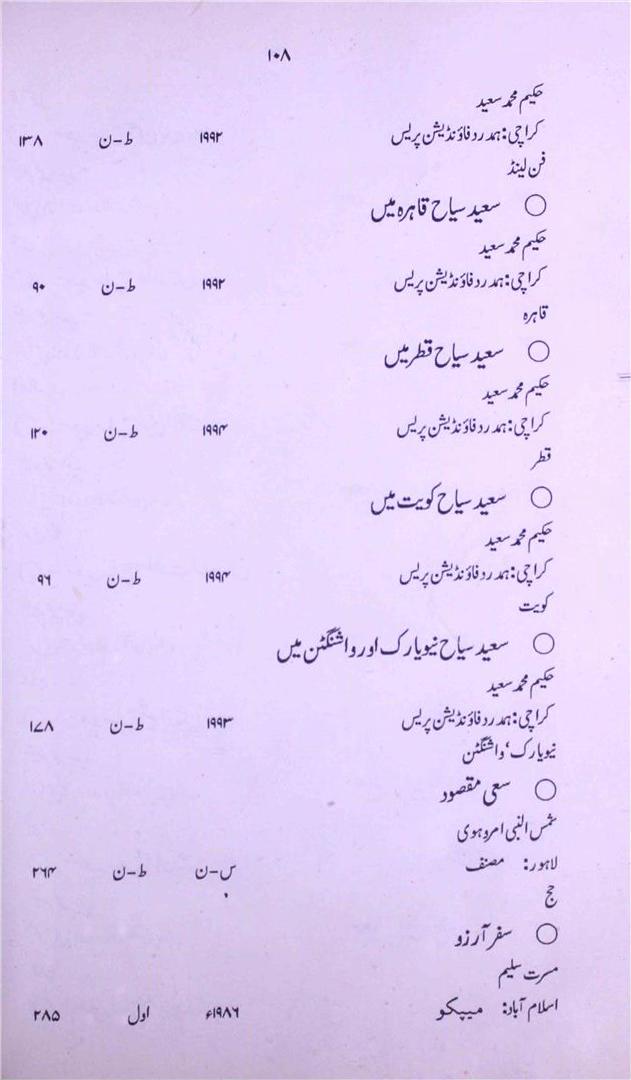 ۱۰۸
حکیم محمد سعید
کراچی: ہمدرد فاؤنڈیشن پریس ۱۹۹۲ ط-ن ۱۳۸
فن لینڈ
○ سعید سیاح قاہرہ میں
حکیم محمد سعید
کراچی: ہمدرد فاؤنڈیشن پریس ۱۹۹۲ ط-ن ۹۰
قاہرہ
○ سعید سیاح قطر میں
حکیم محمد سعید
کراچی: ہمدرد فاؤنڈیشن پریس ۱۹۹۴ ط-ن ۱۲۰
قطر
○ سعید سیاح کویت میں
حکیم محمد سعید
کراچی: ہمدرد فاؤنڈیشن پریس ۱۹۹۴ ط-ن ۹۶
کویت
○ سعید سیاح نیویارک اور واشنگٹن میں
حکیم محمد سعید
کراچی: ہمدرد فاؤنڈیشن پریس ۱۹۹۳ ط-ن ۱۷۸
نیویارک، واشنگٹن
○ سعی مقصود
شمس النبی امروہوی
لاہور: مصنف س-ن ط-ن ۲۶۴
حج
○ سفر آرزو
مسرت سلیم
اسلام آباد: میپکو ۱۹۸۶ء اول ۲۸۵